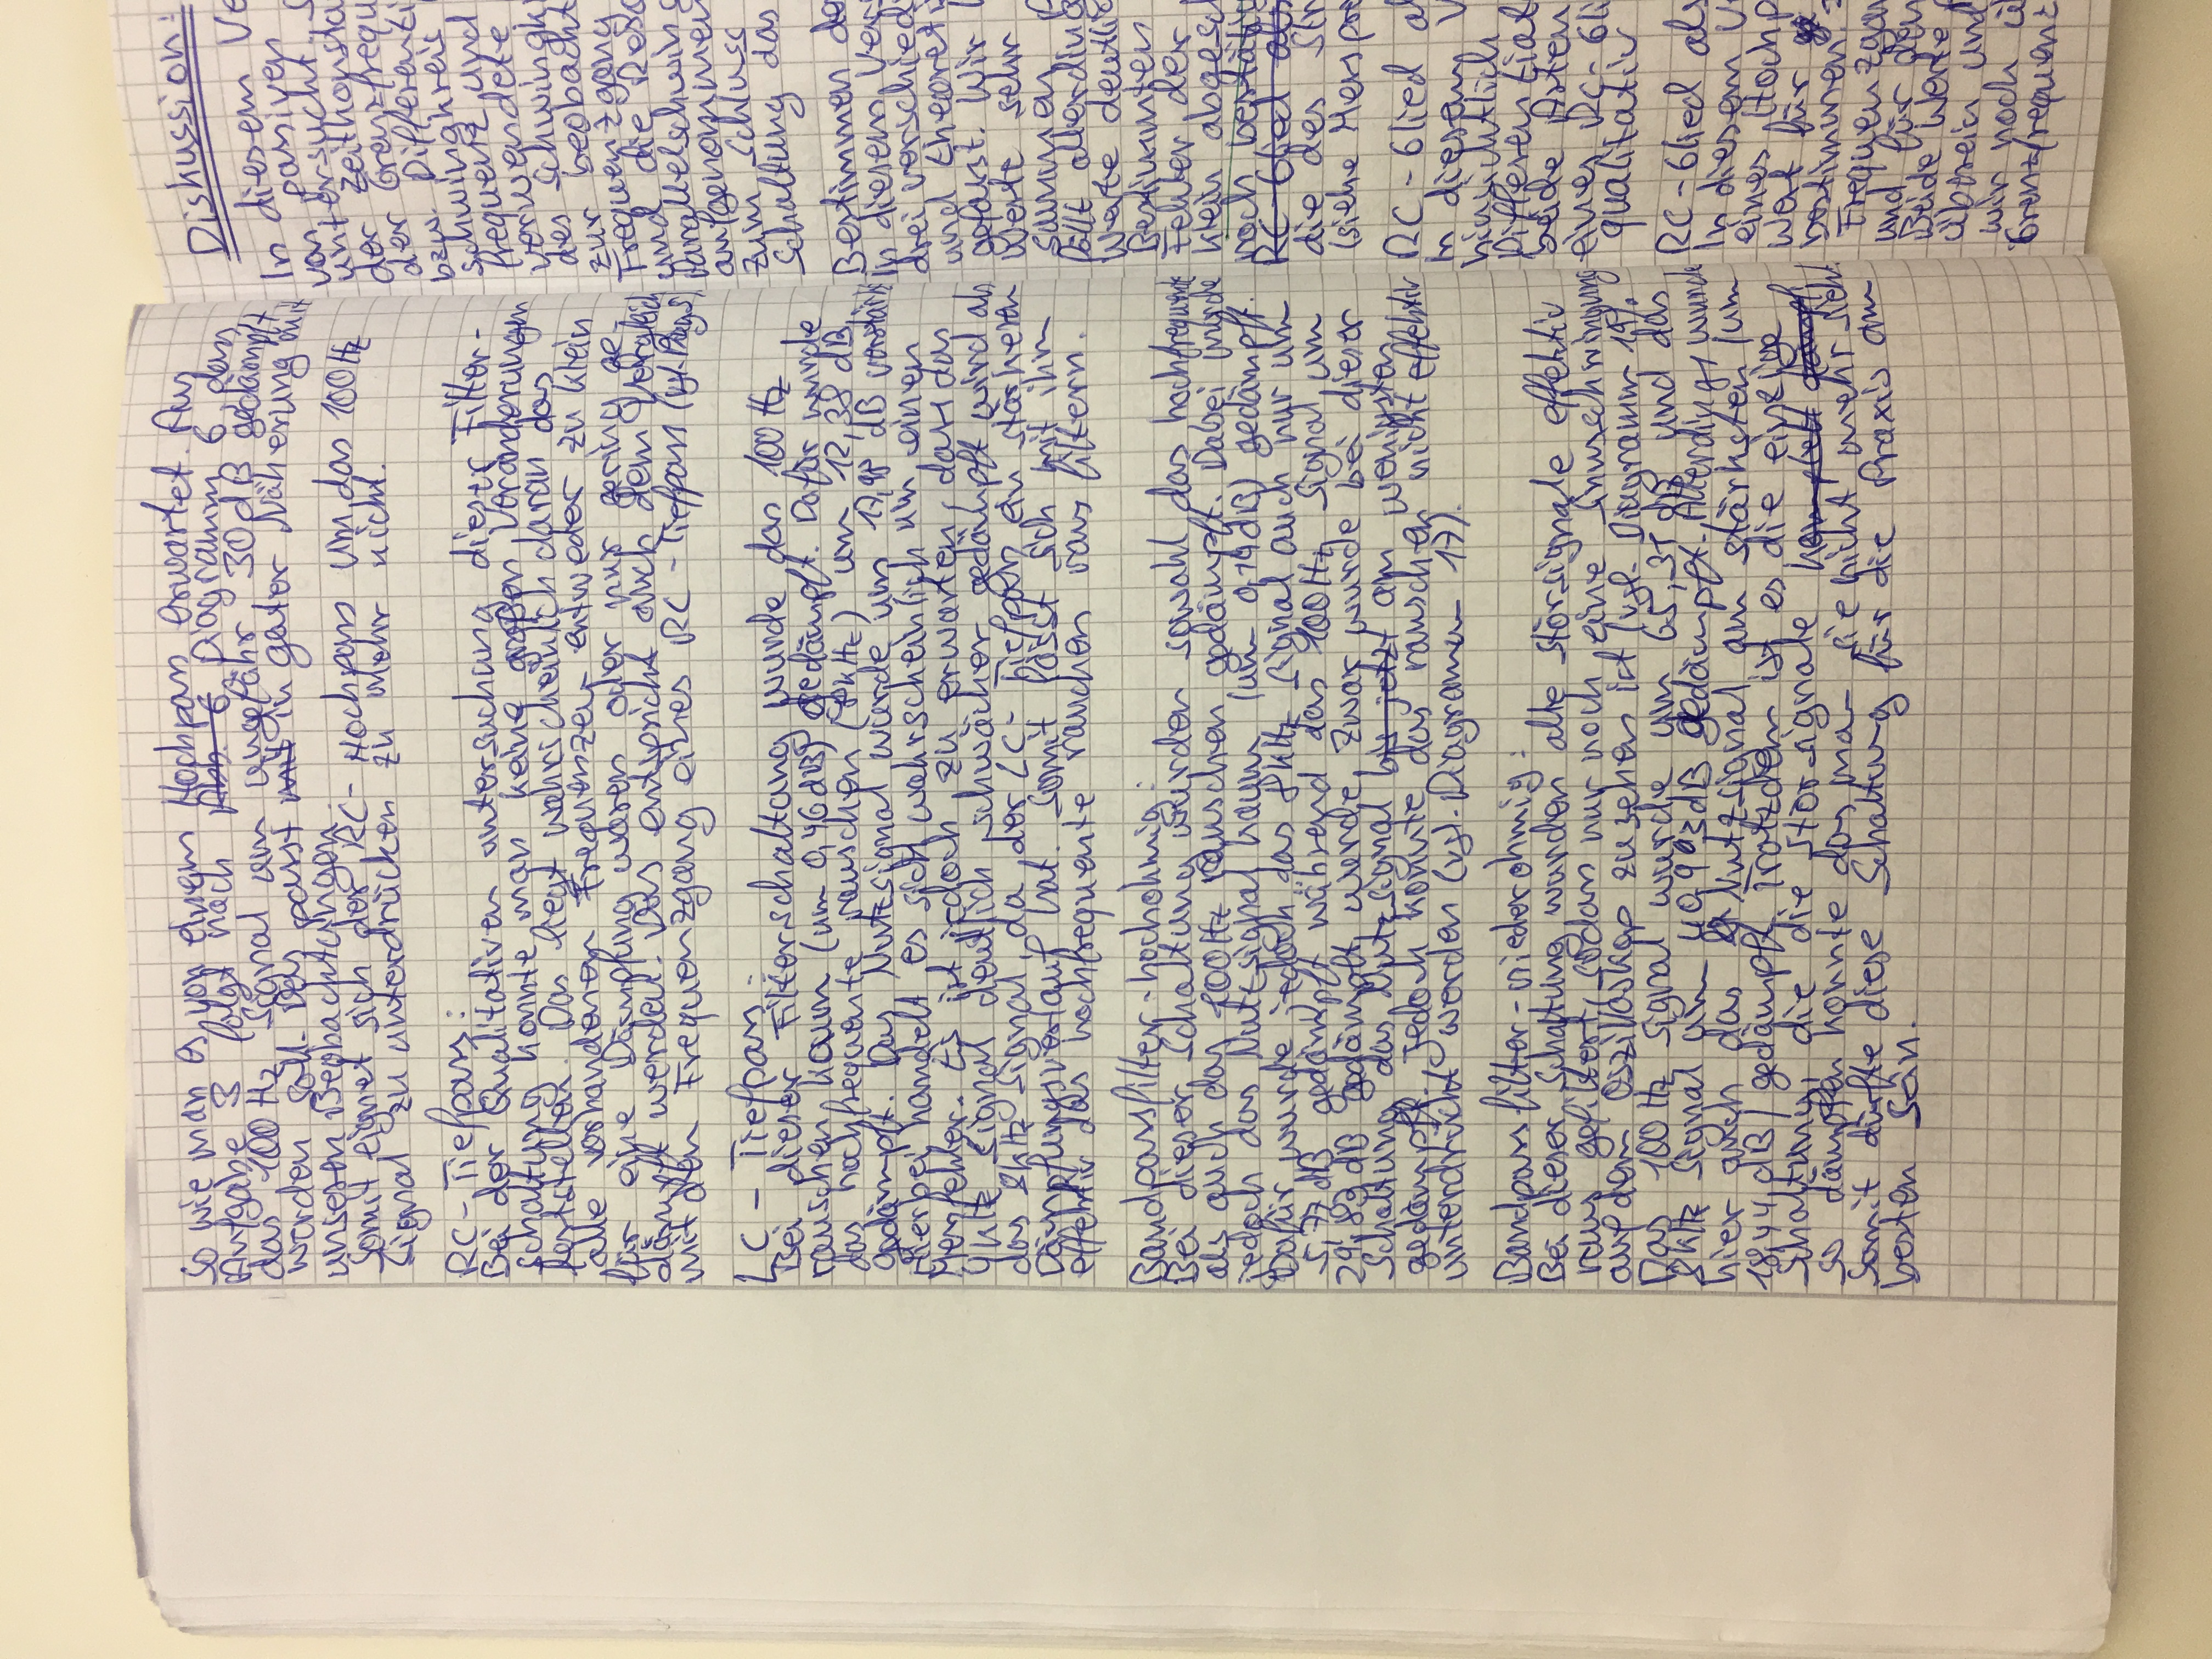 so wie man es von einem Hochpass erwartet. Aus
Aufgabe 3 folgt nach Abb. 6 Diagramm 6, dass
das 100 Hz Signal um ungefähr 30 dB gedämpft
werden soll. Das passt mit in guter Näherung mit
unseren Beobachtungen.
Somit eignet sich der RC-Hochpass um das 100 Hz
Signal zu unterdrücken zu mehr nicht.
RC-Tiefpass:
Bei der Qualitativen untersuchung dieser Filter-
schaltung konnte man keine großen Veränderungen
feststellen. Das liegt wahrscheinlich daran das
alle vorhandenen Frequenzen entweder zu klein
für eine Dämpfung waren oder nur gering ge-
dämpft werden. Das entspricht auch dem Vergleich
mit den Frequenzgang eines RC-Tiefpass
LC-Tiefpass:
Bei dieser Filterschaltung wurde das 100 Hz
rauschen kaum (um 0,46 dB) gedämpft. Dafür wurde
das hochfrequente rauschen (8kHz) um 12,38 dB
gedämpft. Das Nutzsignal wurde um 17,98 dB verstärkt
Hierbei handelt es sich wahrscheinlich um einen
Messfehler. Es ist jedoch zu erwarten, dass das
4kHz Signal deutlich schwächer gedämpft wird als
das 8kHz Signal, da der LC-Tiefpass ein stärkeren
Dämpfungsverlauf hat. Somit lässt sich mit ihm
effektiv das hochfrequente rauchen raus filtern.
Bandpassfilter-hochohmig:
Bei dieser Schaltung wurden sowohl das hochfrequente
als auch das 100Hz rauschen gedämpft. Dabei wurde
jedoch das Nutzsignal kaum (um 0,79 dB) gedämpft.
Dafür wurde jedoch das 8kHz Signal auch nur um
5,77 dB gedämpft während das 100Hz Signal um
29,83 dB gedämpft wurde. Zwar wurde bei dieser
Schaltung das Nutzsignal bis jetzt am wenigsten
gedämpft, jedoch konnte das rauschen nicht effektiv
unterdrückt werden (vgl. Diagramm 17).
Bandpassfilter-niederohmig:
Bei dieser Schaltung wurden alle störsignale effektiv
raus gefiltert, sodass nur noch eine Sinusschwingung
auf dem Oszilloskop zu sehen ist (vgl. Diagramm
Das 100Hz Signal wurde um 65,31 dB und das
8kHz Signal um 40,93 dB gedämpft. Allerdings wurde
hier auch das Nutzsignal am stärksten (um
18,44 dB) gedämpft. Trotzdem ist es die einzige
Schaltung, die die Störsignale
so dämpfen konnte das man sie nicht mehr sieht.
Somit dürfte diese Schaltung für die Praxis am
besten sein.
Diskussion:
In diesem Ve
von passiven
untersucht. S
der Zeitkonsta
der Grenzfrequ
bzw. Differenti
schwingkreis
frequenz und
verwendete
des Schwingk
zur beobacht
Frequenzgang
und die Reso
Parallelschwin
aufgenommen
Zum Schluss
Schaltung das
Bestimmen de
In diesem Vers
drei verschied
und theoreti
gefasst. Wir
Werte sehr
sammen
fällt allerding
Werte deutli
Bestimmten
Fehler der
klein abgesch
noch bestätig
RC-Glied als
die des
(siehe Messpro
RC-Glied al
In diesem V
hinsichtlich
Differentiat
beide Arten
eines RC-Gli
qualitativ
RC-Glied als
In diesem V
eines Hochp
Wert für
bestimmen.
Frequenzgan
und für den
Beide Werte
überein und
wir noch
Grenzfrequenz